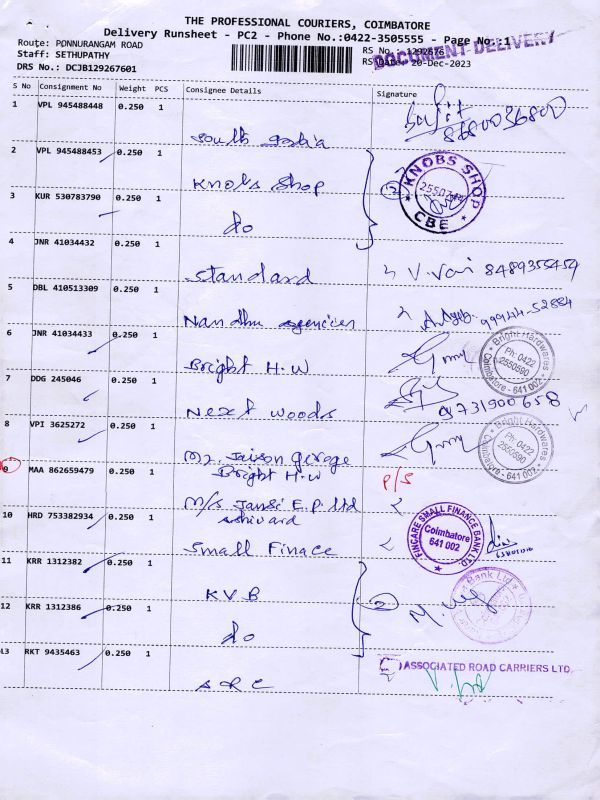 THE PROFESSIONAL COURIERS, COIMBATORE
Delivery Runsheet - PC2 - Phone No.:0422-3505555 - Page No.:1
DOCUMENT DELIVERY
Route: PONNURANGAM ROAD
Staff: SETHUPATHY
DRS No.: DCJB129267601
RS No.: 1292676
RS Date: 20-Dec-2023
S No Consignment No Weight PCS Consignee Details Signature
1 VPL 945488448 0.250 1
South India
2 VPL 945488453 0.250 1
Knobs Shop
KNOBS SHOP
CBE
3 KUR 530783790 0.250 1
do
4 JNR 41034432 0.250 1
Standard
8489355459
5 DBL 410513309 0.250 1
Nandhu agencies
99944-52884
6 JNR 41034433 0.250 1
Bright H.W
Bright Hardwares
Ph: 0422
2550590
Coimbatore - 641 002
7 DDG 245046 0.250 1
Next woods
9731900658
8 VPI 3625272 0.250 1
Mr. Jaison
Bright H.W
Bright Hardwares
Ph: 0422
2550590
Coimbatore - 641 002
9 MAA 862659479 0.250 1
M/s Jansi E.P. Ltd
P/S
10 HRD 753382934 0.250 1
Small Finace
FINCARE SMALL FINANCE BANK LTD.
Coimbatore
641 002
11 KRR 1312382 0.250 1
K.V.B
12 KRR 1312386 0.250 1
do
Bank Ltd
13 RKT 9435463 0.250 1
ARC
ASSOCIATED ROAD CARRIERS LTD.